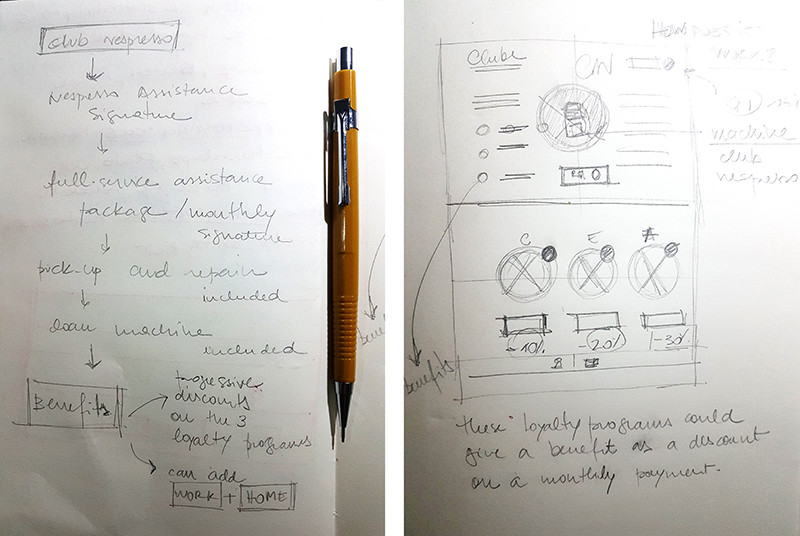 Club nespresso
Nespresso Assistance
Signature
full-service assistance
package/monthly
signature
pick-up and repair
included
loan machine
included
Benefits
Progressive
discounts
on the 3
loyalty programs
can add
WORK + HOME
Clube
CN
machine
club
nespresso
C E A
-10% -20% -30%
benefits
these loyalty programs could
give a benefit as a discount
on a monthly payment.